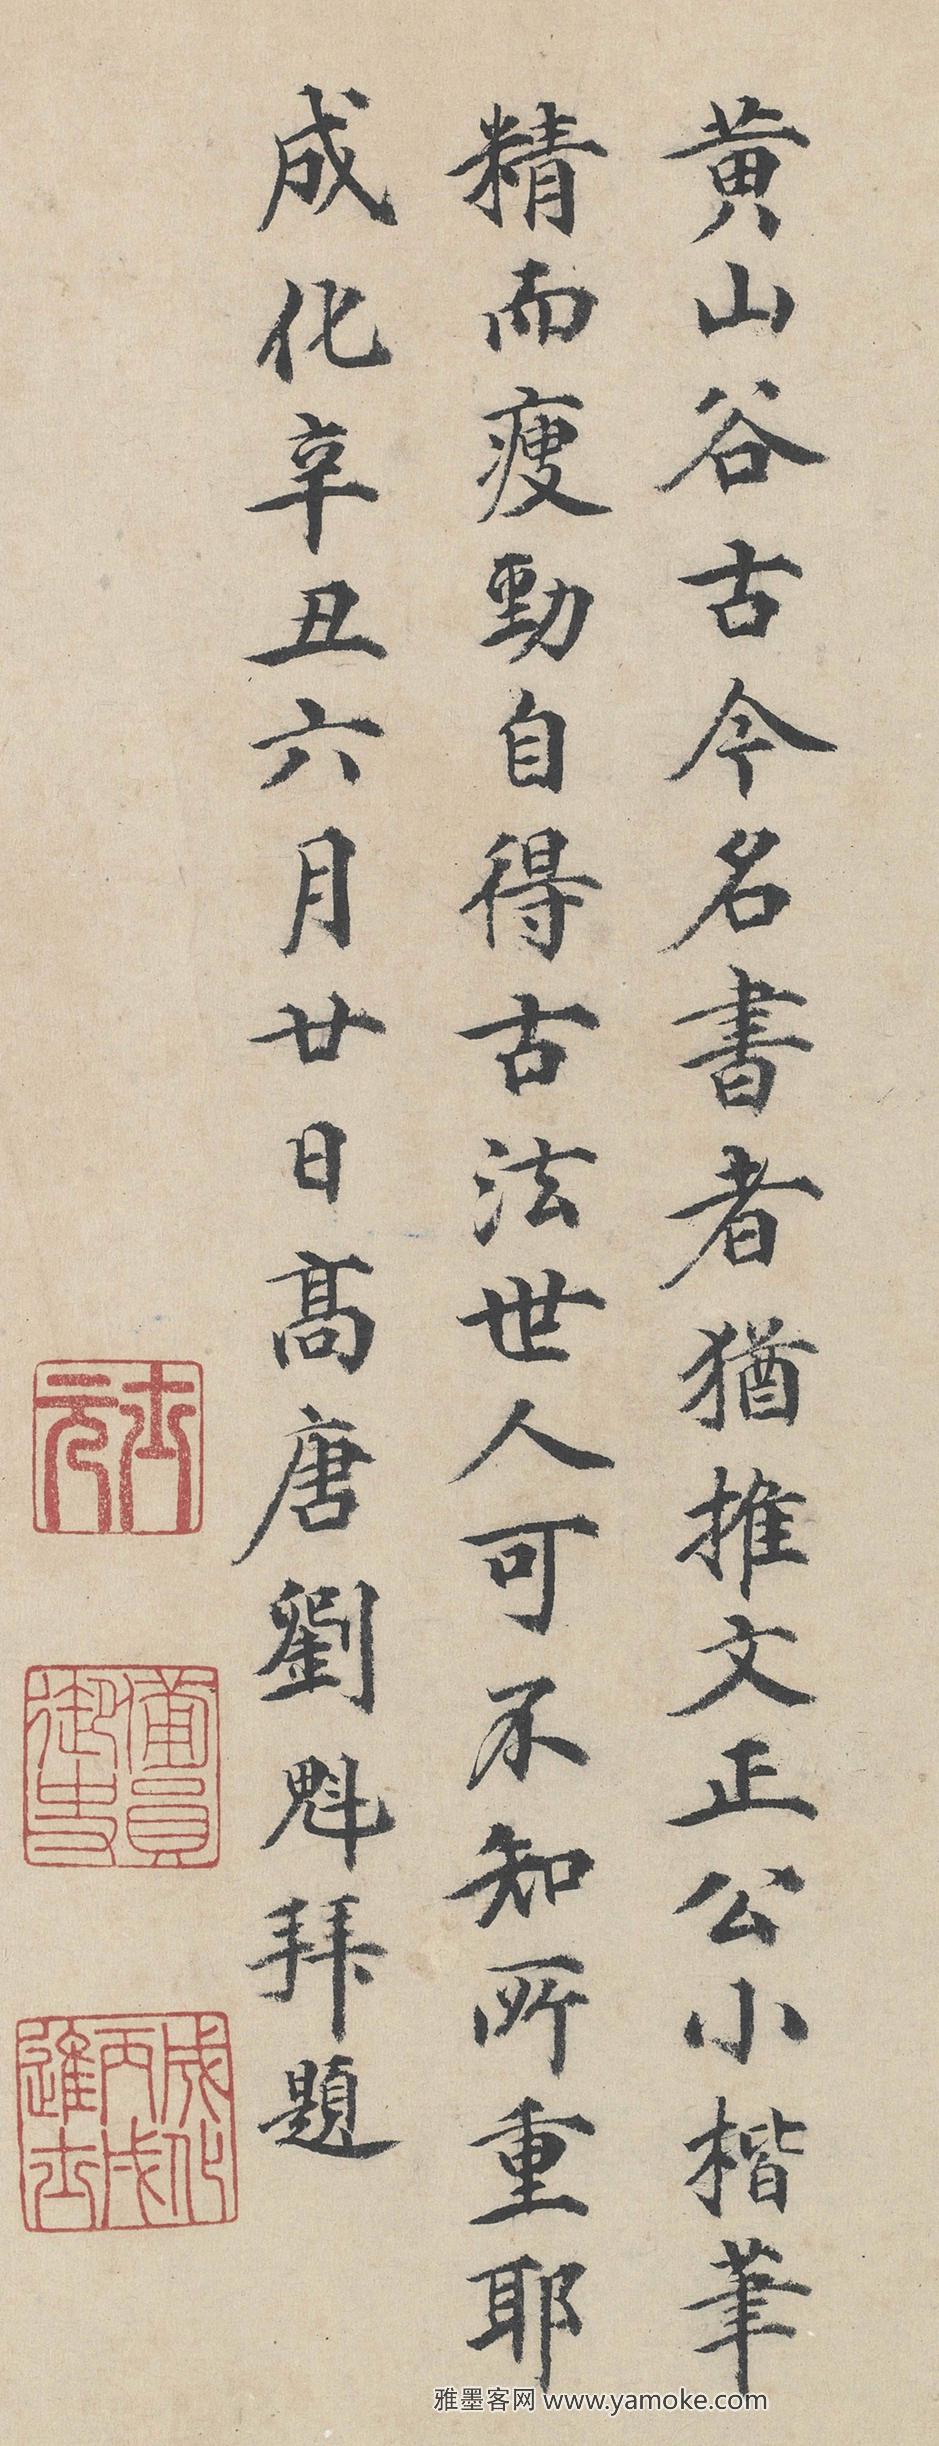 黄山谷古今名書者猶推文正公小楷筆
精而瘦勁自得古法世人可不知所重耶
成化辛丑六月廿日高唐劉魁拜題
士元
備員御史
成化丙戌進士
雅墨客网 www.yamoke.com